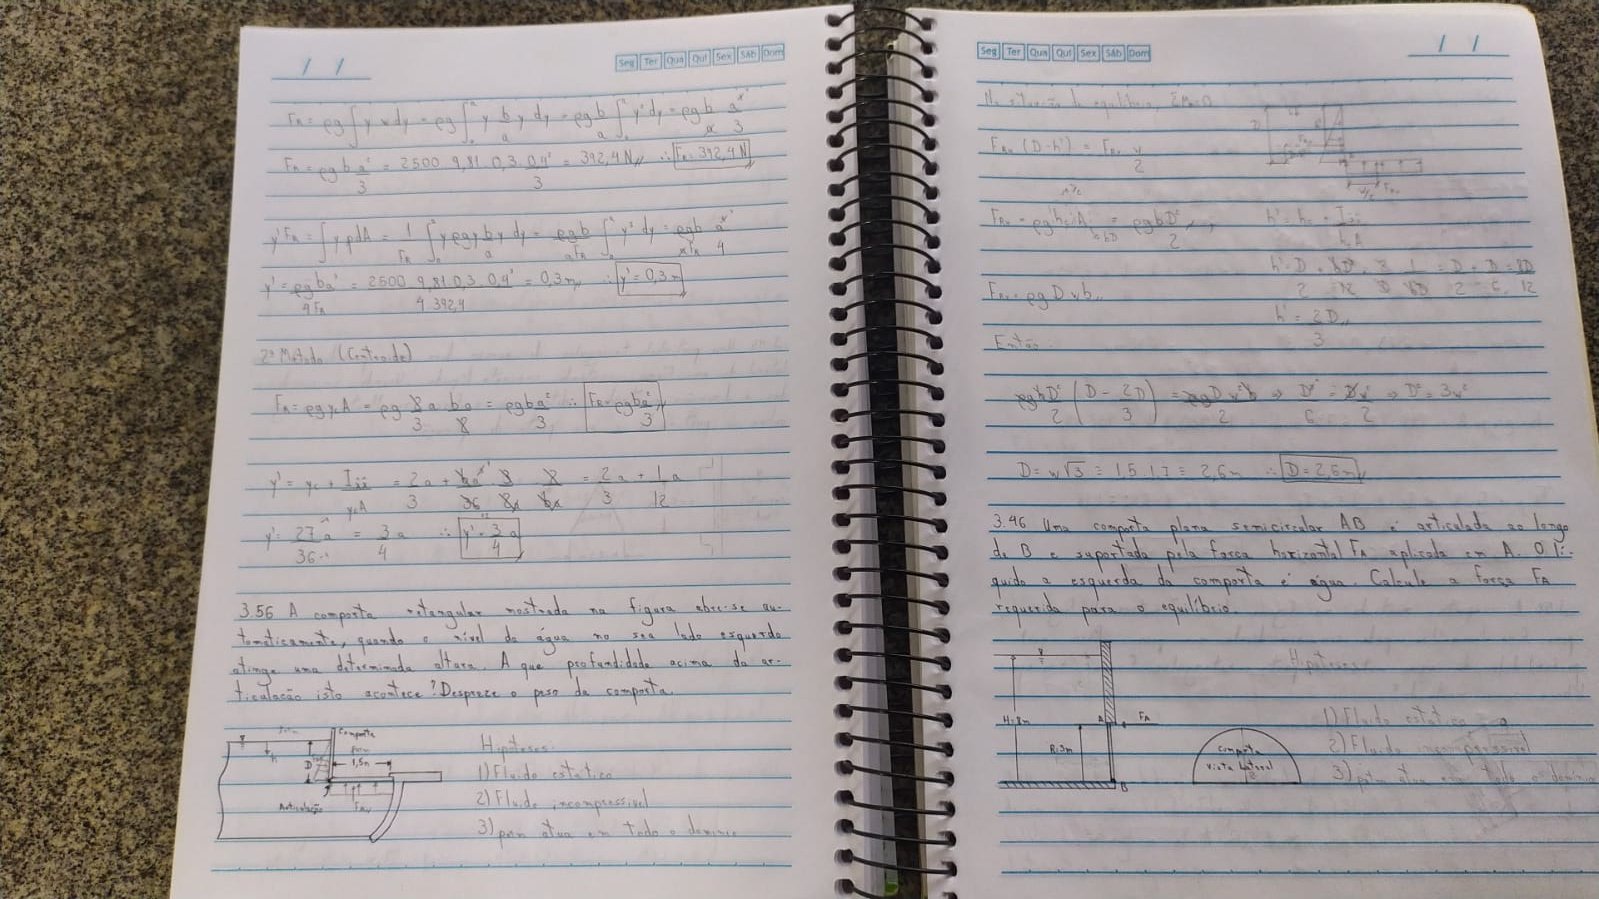 / /
Seg Ter Qua Qui Sex Sáb Dom
F_R = ρg∫y w dy = ρg∫₀ᵃ y b/a y dy = ρg b/a ∫₀ᵃ y² dy = ρg b/a a³/3
F_R = ρg b a²/3 = 2500 9,81 0,3 0,4²/3 = 392,4 N,, ∴ F_R = 392,4 N
y'F_R = ∫y p dA = 1/F_R ∫₀ᵃ y ρg y b/a y dy = ρgb/aF_R ∫₀ᵃ y³ dy = ρgb/aF_R a⁴/4
y' = ρgba³/4F_R = 2500 9,81 0,3 0,4³/4 392,4 = 0,3 m,, ∴ y' = 0,3 m
2º Método (Centroide)
F_R = ρg y_c A = ρg 2a/3 ba/2 = ρgba²/3 ∴ F_R = ρgba²/3
y' = y_c + I_xx/y_cA = 2a/3 + ba³/36 3/2a 2/ba = 2/3 a + 1/12 a
y' = 27a/36 = 3/4 a ∴ y' = 3/4 a
3.56 A comporta retangular mostrada na figura abre-se au-
tomaticamente, quando o nível da água no seu lado esquerdo
atinge uma determinada altura. A que profundidade acima da ar-
ticulação isto acontece? Despreze o peso da comporta.
Comporta
patm
1,5m
D
h
Articulação
F_RV
Hipóteses:
1) Fluido estático
2) Fluido incompressível
3) patm atua em todo o domínio
/ /
Seg Ter Qua Qui Sex Sáb Dom
Na situação de equilíbrio, ΣM₀=0
F_RH (D-h') = F_RV w/2
F_RH = ρgh_cA = ρgbD²/2 h' = h_c + I_xx/h_cA
h' = D/2 + bD³/12 2/D 1/bD = D/2 + D/6 = 8D/12
F_RV = ρgDwb,, h' = 2D/3
Então:
ρgbD²/2 (D - 2D/3) = ρgDw²b/2 ⇒ D³/6 = Dw²/2 ⇒ D² = 3w²
D = w√3 = 1,5 1,7 = 2,6m ∴ D = 2,6m
3.46 Uma comporta plana semicircular AB é articulada ao longo
de B e suportada pela força horizontal FA aplicada em A. O lí-
quido a esquerda da comporta é água. Calcule a força FA
requerida para o equilíbrio.
Hipóteses:
H=8m
A
FA
R=3m
B
comporta
vista lateral
1) Fluido estático
2) Fluido incompressível
3) patm atua em todo o domínio